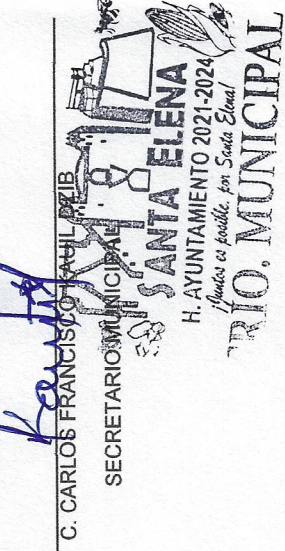 C. CARLOS FRANCISCO KAUIL DZIB
SECRETARIO MUNICIPAL
SANTA ELENA
H. AYUNTAMIENTO 2021-2024
¡Juntos es posible, por Santa Elena!
RIO, MUNICIPAL